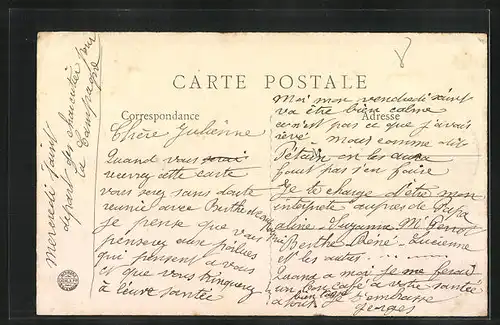 CARTE POSTALE
Correspondance
Adresse
Mercredi saint
départ des
la Campagne
Chère Julienne
Quand vous
recevrez cette carte
vous serez sans doute
réunie avec Berthe
je pense que vous
penserez aux poilus
qui pensent a vous
et que vous trinquerez
à leure santée
Moi mon vendredi saint
va être bien calme
ce n'est pas ce que j'avais
rêvé mais comme dit
Pétain on les aura
faut pas s'en faire
Je te charge d'être mon
interprète auprès de Papa
aline Suzanne Mr
Berthe René Lucienne
et les autres
Quand a moi je me ferai
un bon café a votre santée
a tous je t'embrasse
bien fort
Georges